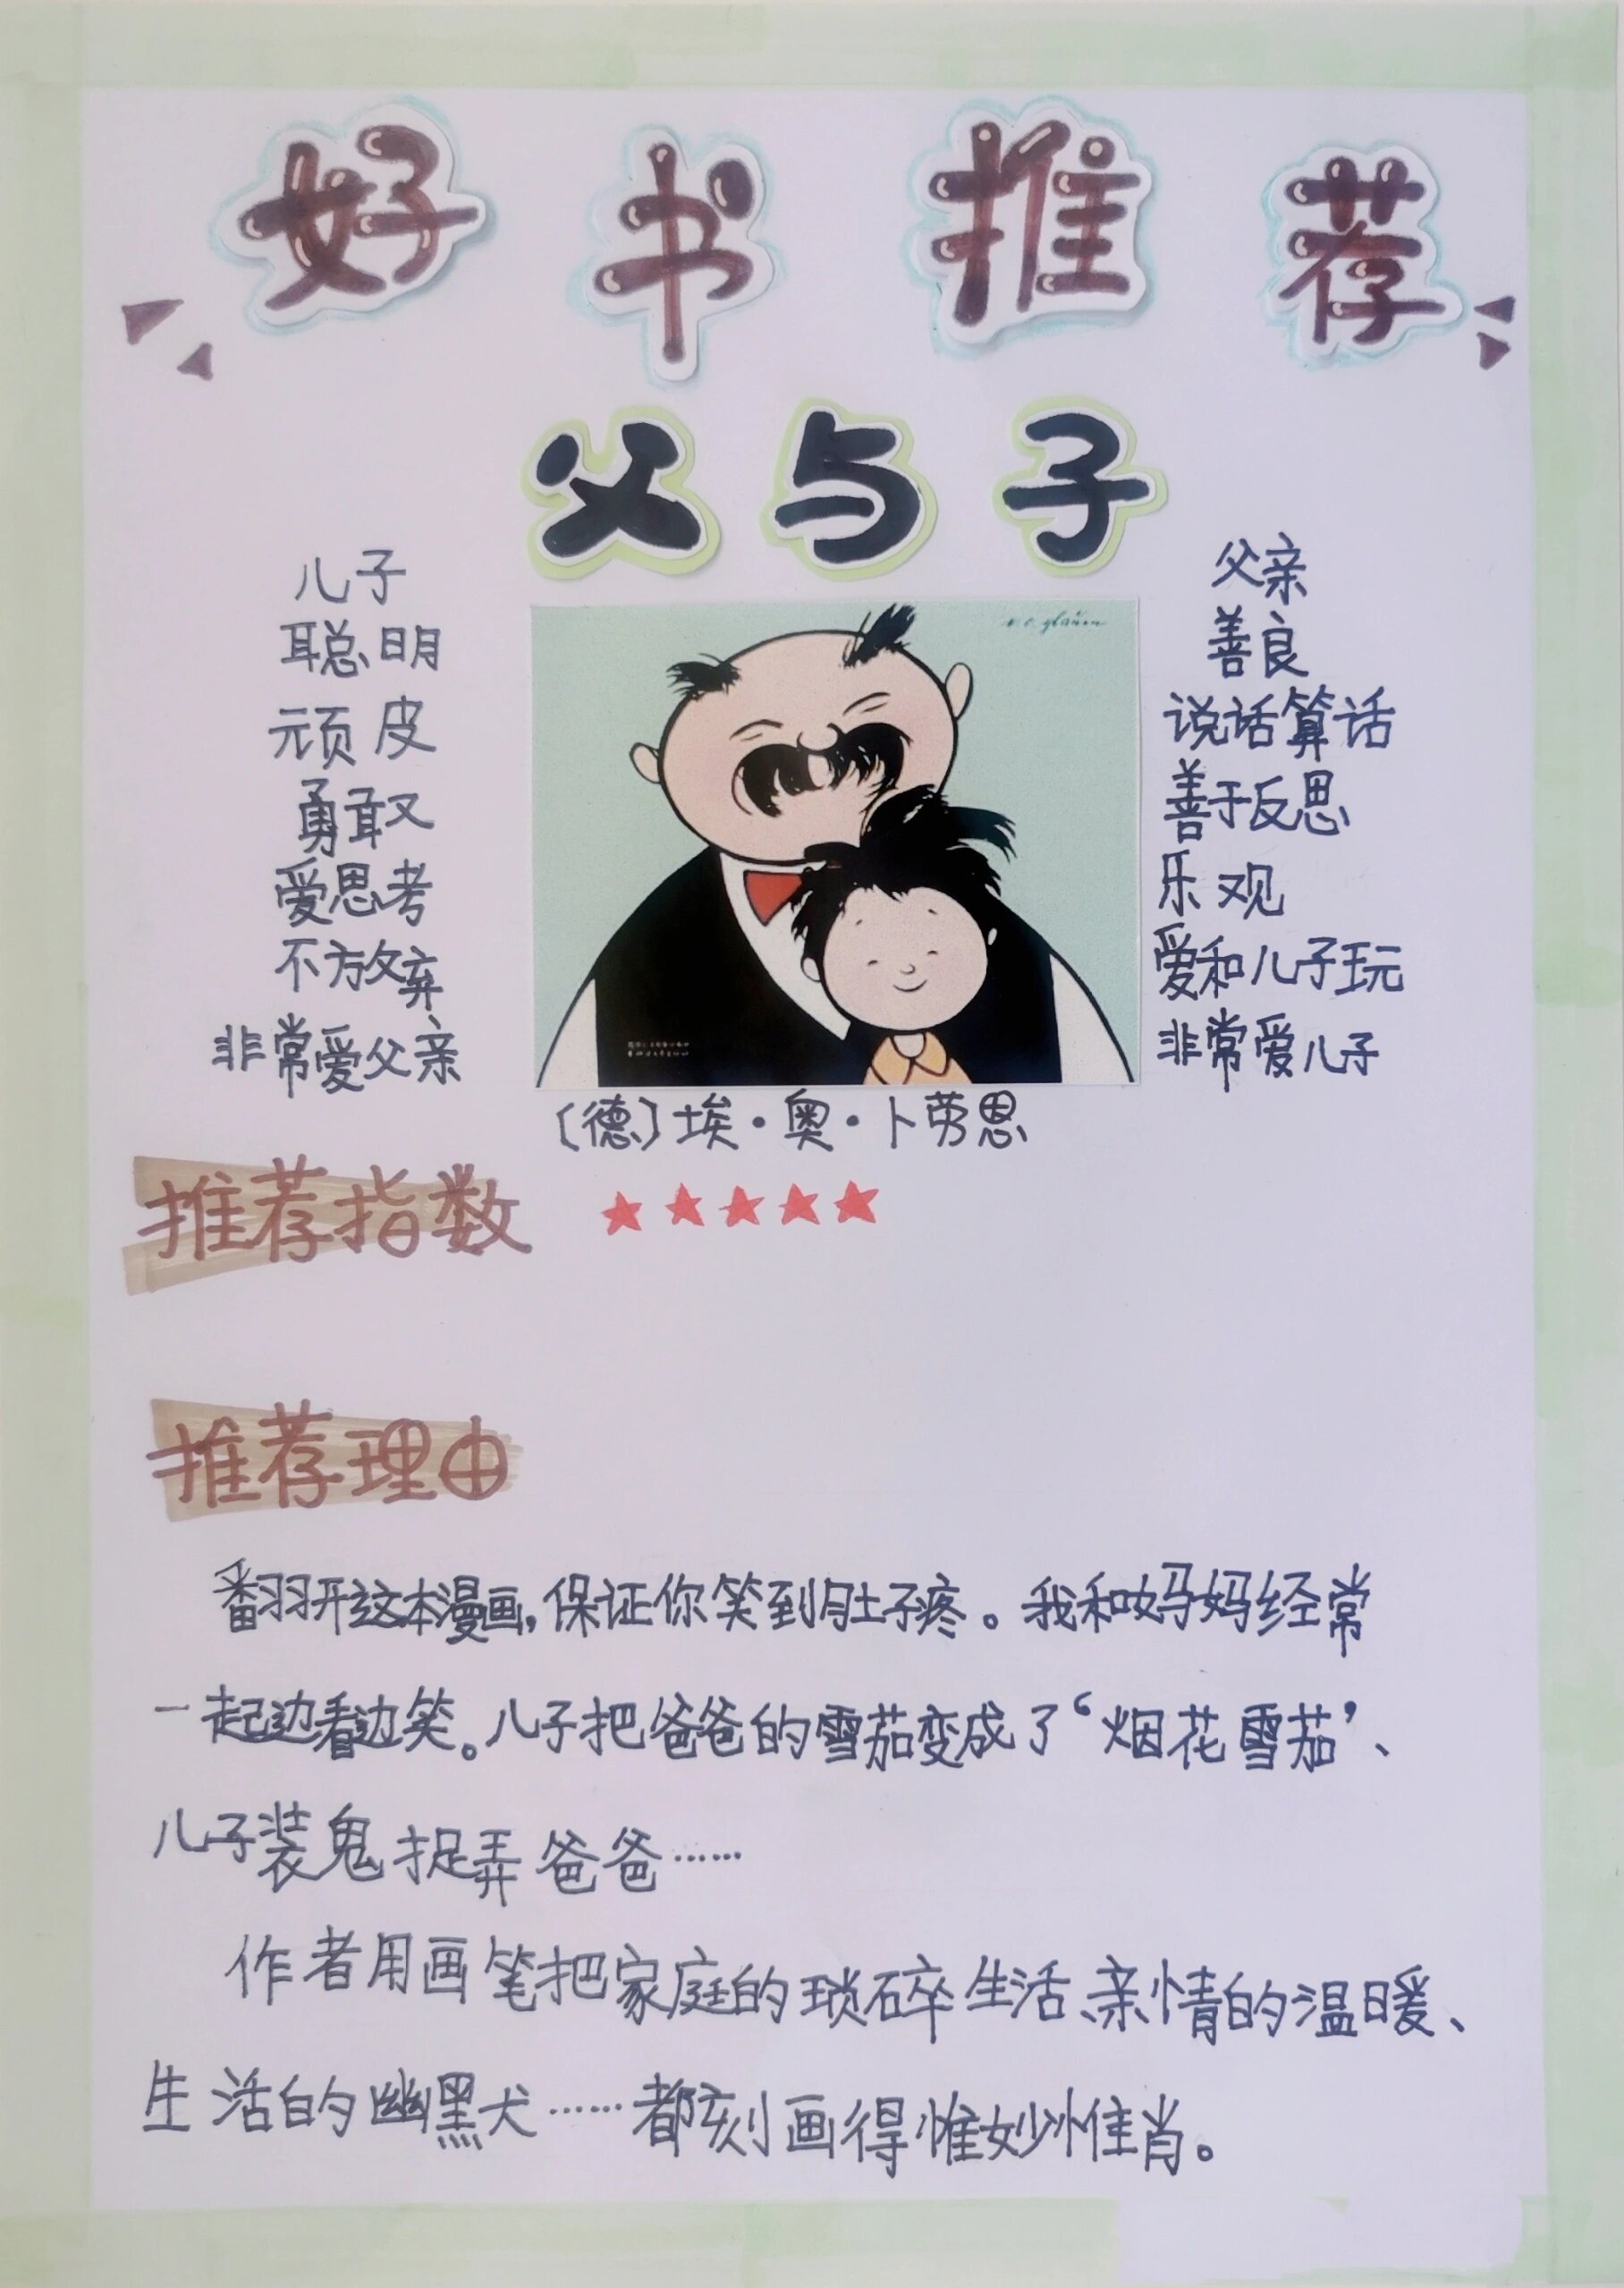 好书推荐
父与子
儿子
聪明
顽皮
勇敢
爱思考
不放弃
非常爱父亲
父亲
善良
说话算话
善于反思
乐观
爱和儿子玩
非常爱儿子
〔德〕埃·奥·卜劳恩
推荐指数
推荐理由
翻开这本漫画,保证你笑到肚子疼。我和妈妈经常
一起边看边笑。儿子把爸爸的雪茄变成了‘烟花雪茄’、
儿子装鬼捉弄爸爸……
作者用画笔把家庭的琐碎生活、亲情的温暖、
生活的幽默……都刻画得惟妙惟肖。